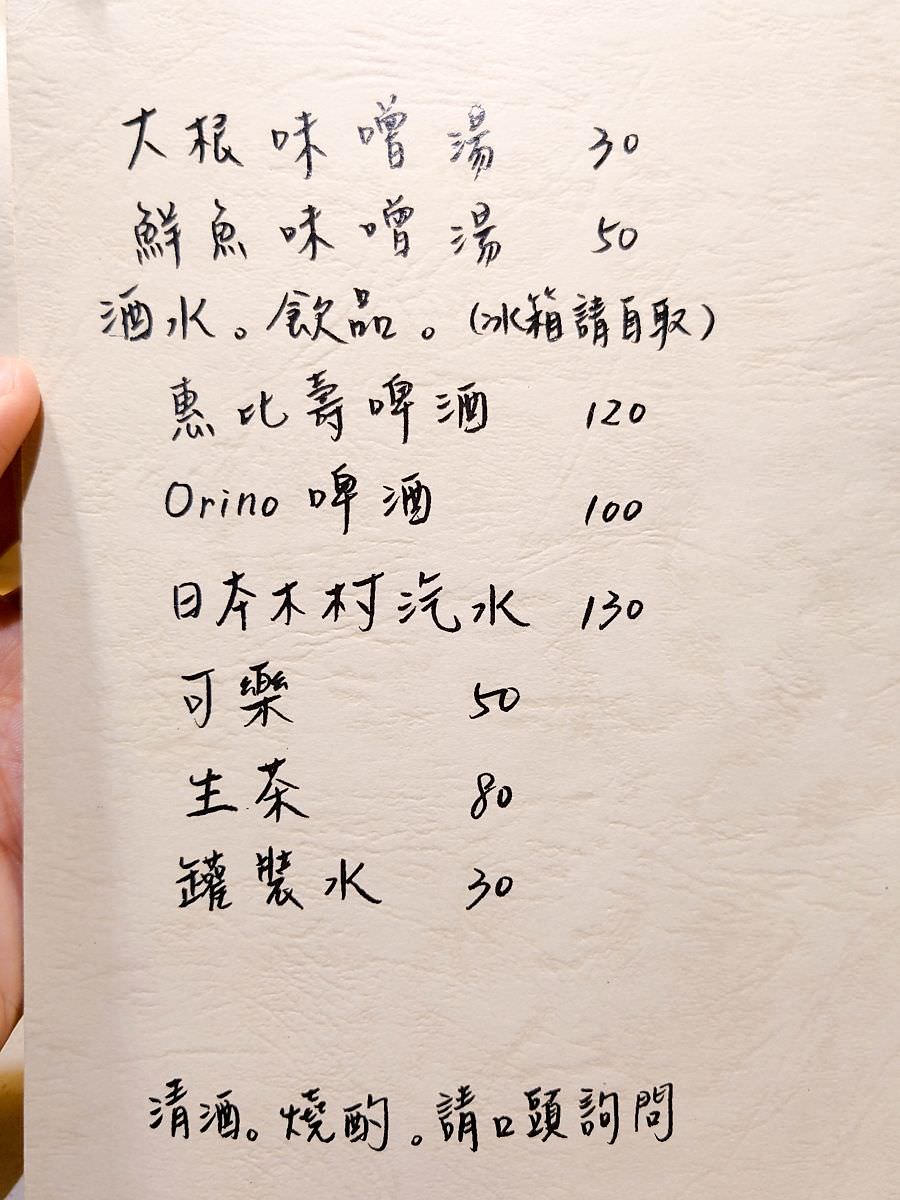 大根味噌湯 30
鮮魚味噌湯 50
酒水。飲品。(冰箱請自取)
惠比壽啤酒 120
Orino 啤酒 100
日本木村汽水 130
可樂 50
生茶 80
罐裝水 30
清酒。燒酌。請口頭詢問